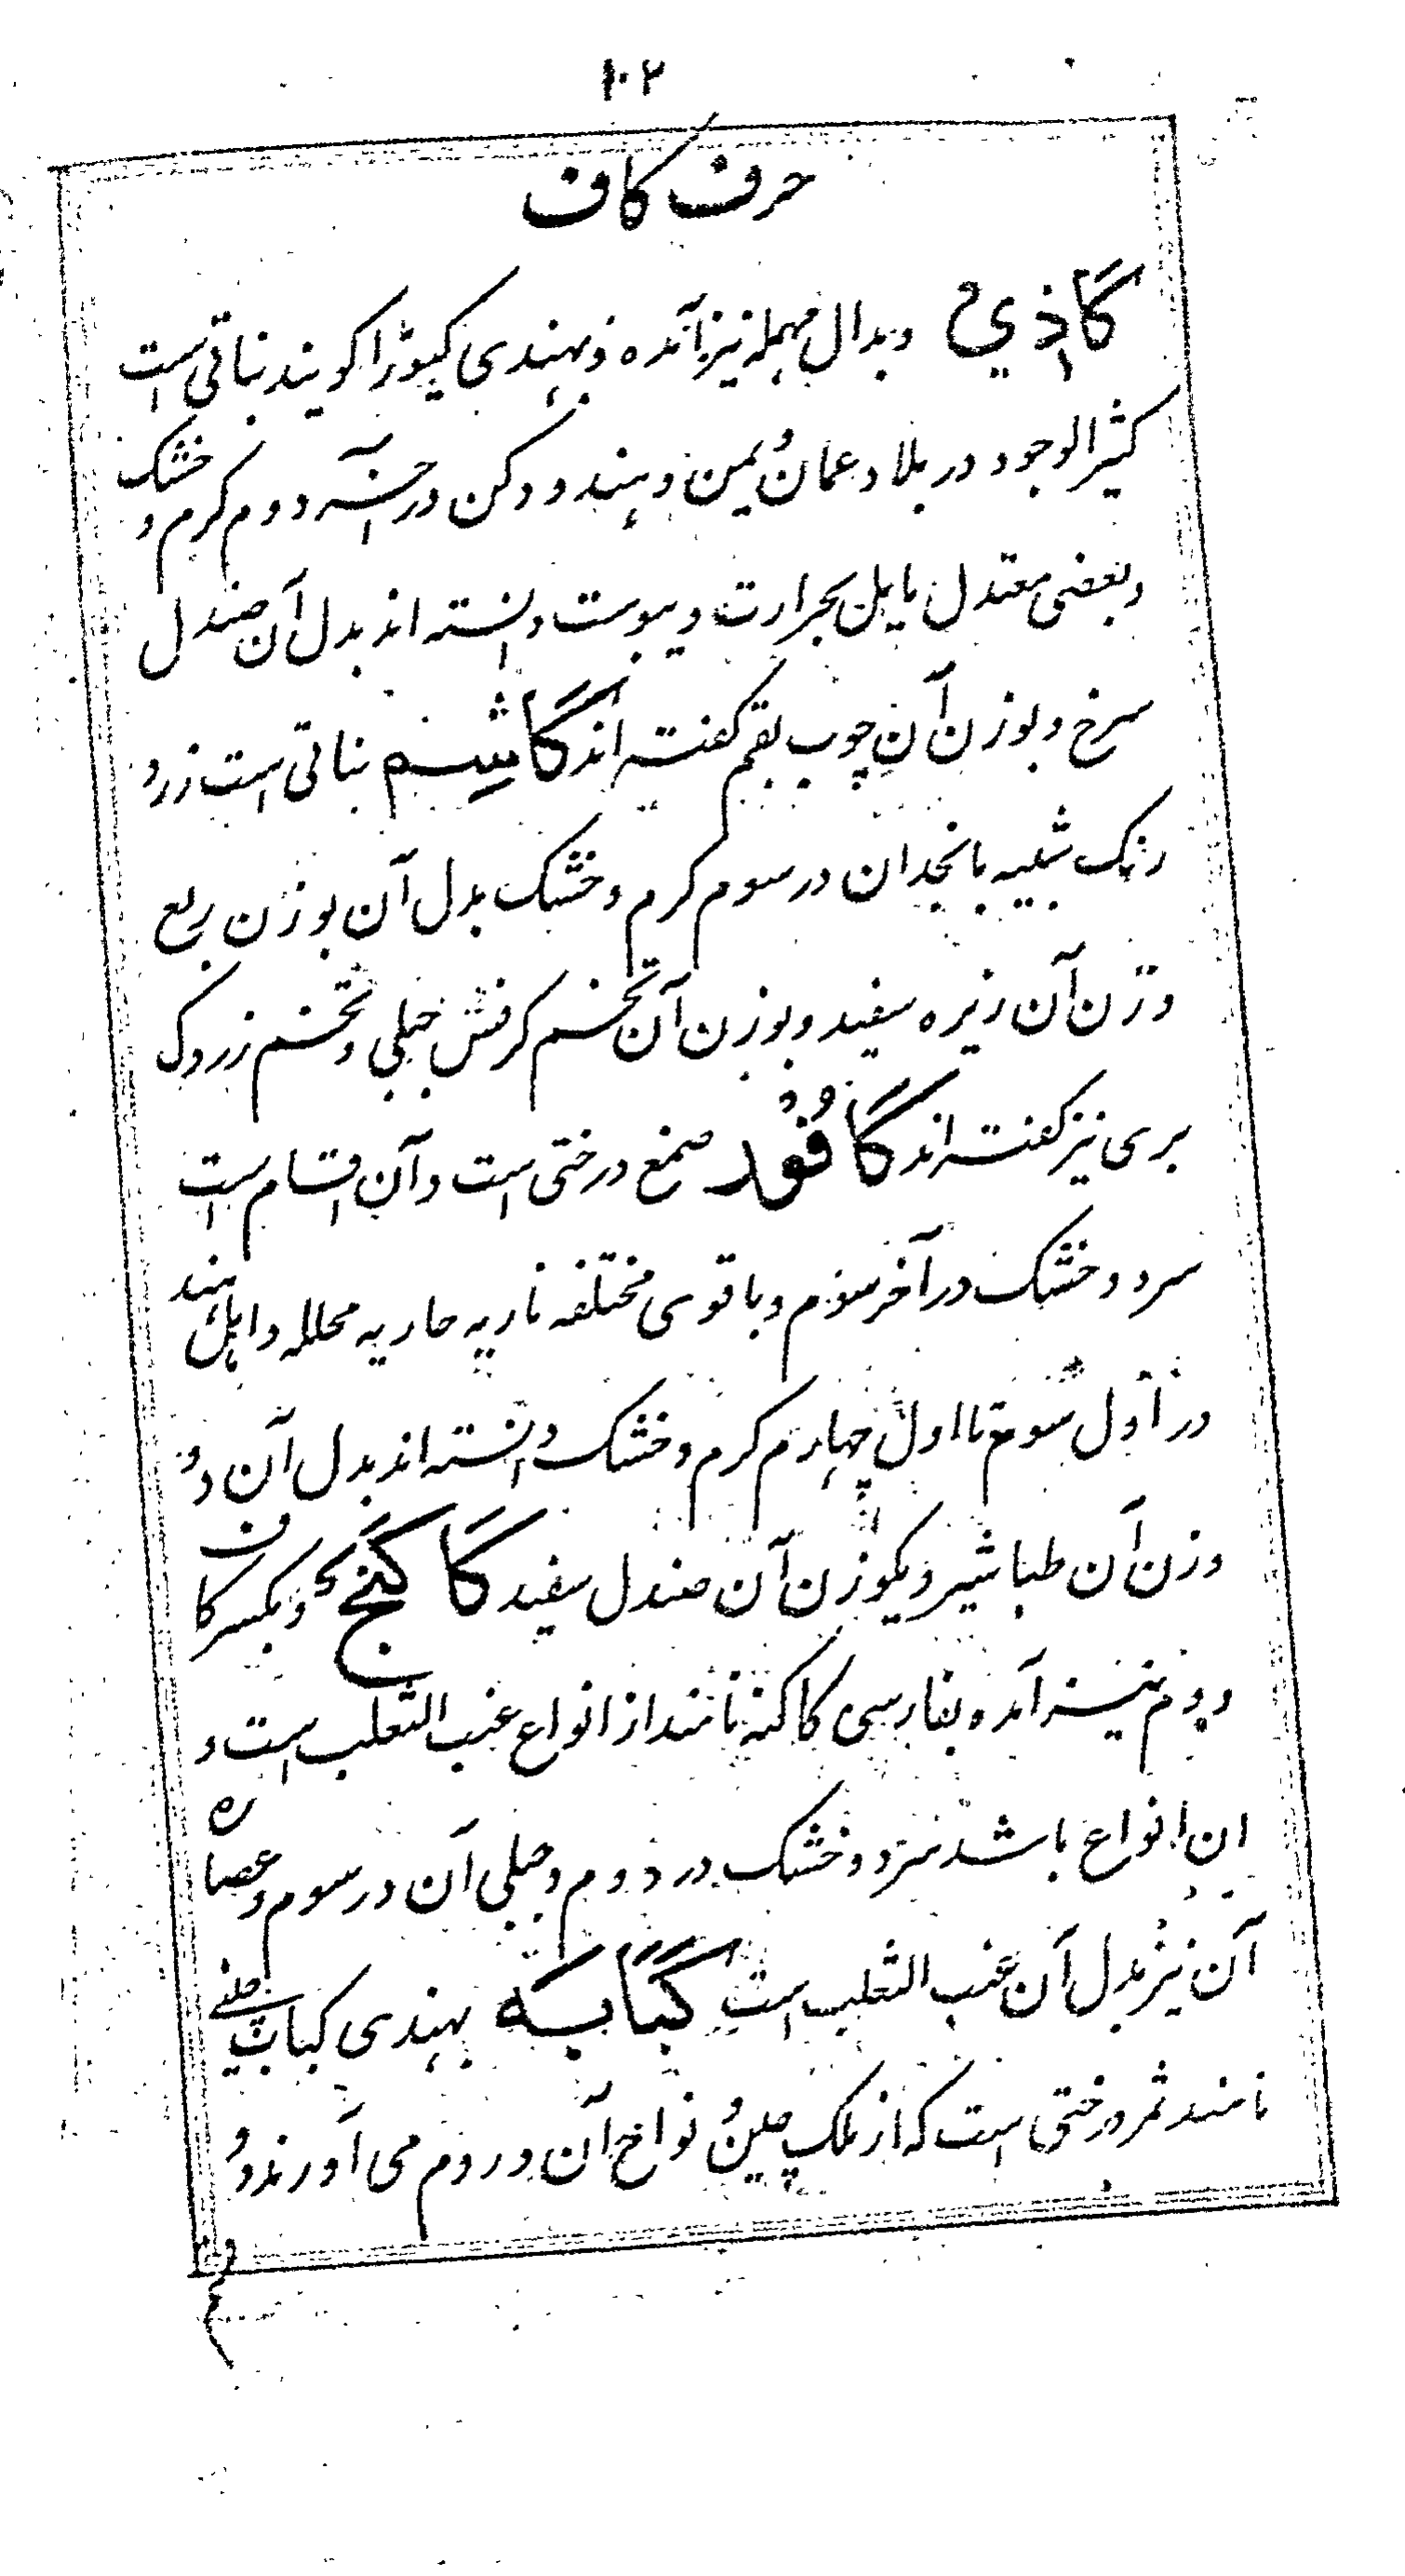 ۱۰۲
حرف کاف
کاذي وبدال مهمله نیز آمده و بهندی کیوڑا کویند نباتی است
کثیرالوجود در بلاد عمان و یمن و هند و دکن در آخر دوم کرم و خشک
و بعضی معتدل مایل بحرارت و یبوست دانسته اند بدل آن صندل
سرخ و بوزن آن چوب بقم کفته اند کاشم نباتی است زرد
رنک شبیه بانجدان در سوم کرم و خشک بدل آن بوزن ربع
وزن آن زیره سفید و بوزن آن تخم کرفس جبلی و تخم زردک
بری نیز کفته اند کافور صمغ درختی است و آن اقسام است
سرد و خشک در آخر سوم و با قوی مختلفه ناریه حاریه محلله و اهل هند
در اول سوم تا اول چهارم کرم و خشک دانسته اند بدل آن دو
وزن آن طباشیر و یکوزن آن صندل سفید کاکنج و بکسر کاف
دوم نیز آمده بفارسی کاکنه نامند از انواع عنب الثعلب است و
ان انواع باشد سرد و خشک در دوم و جبلی آن در سوم و عصاره
آن نیز بدل آن عنب الثعلب است کبابه بهندی کباب چینی
نامند ثمر درختی است که از ملک چین و نواح آن در روم می آورند و